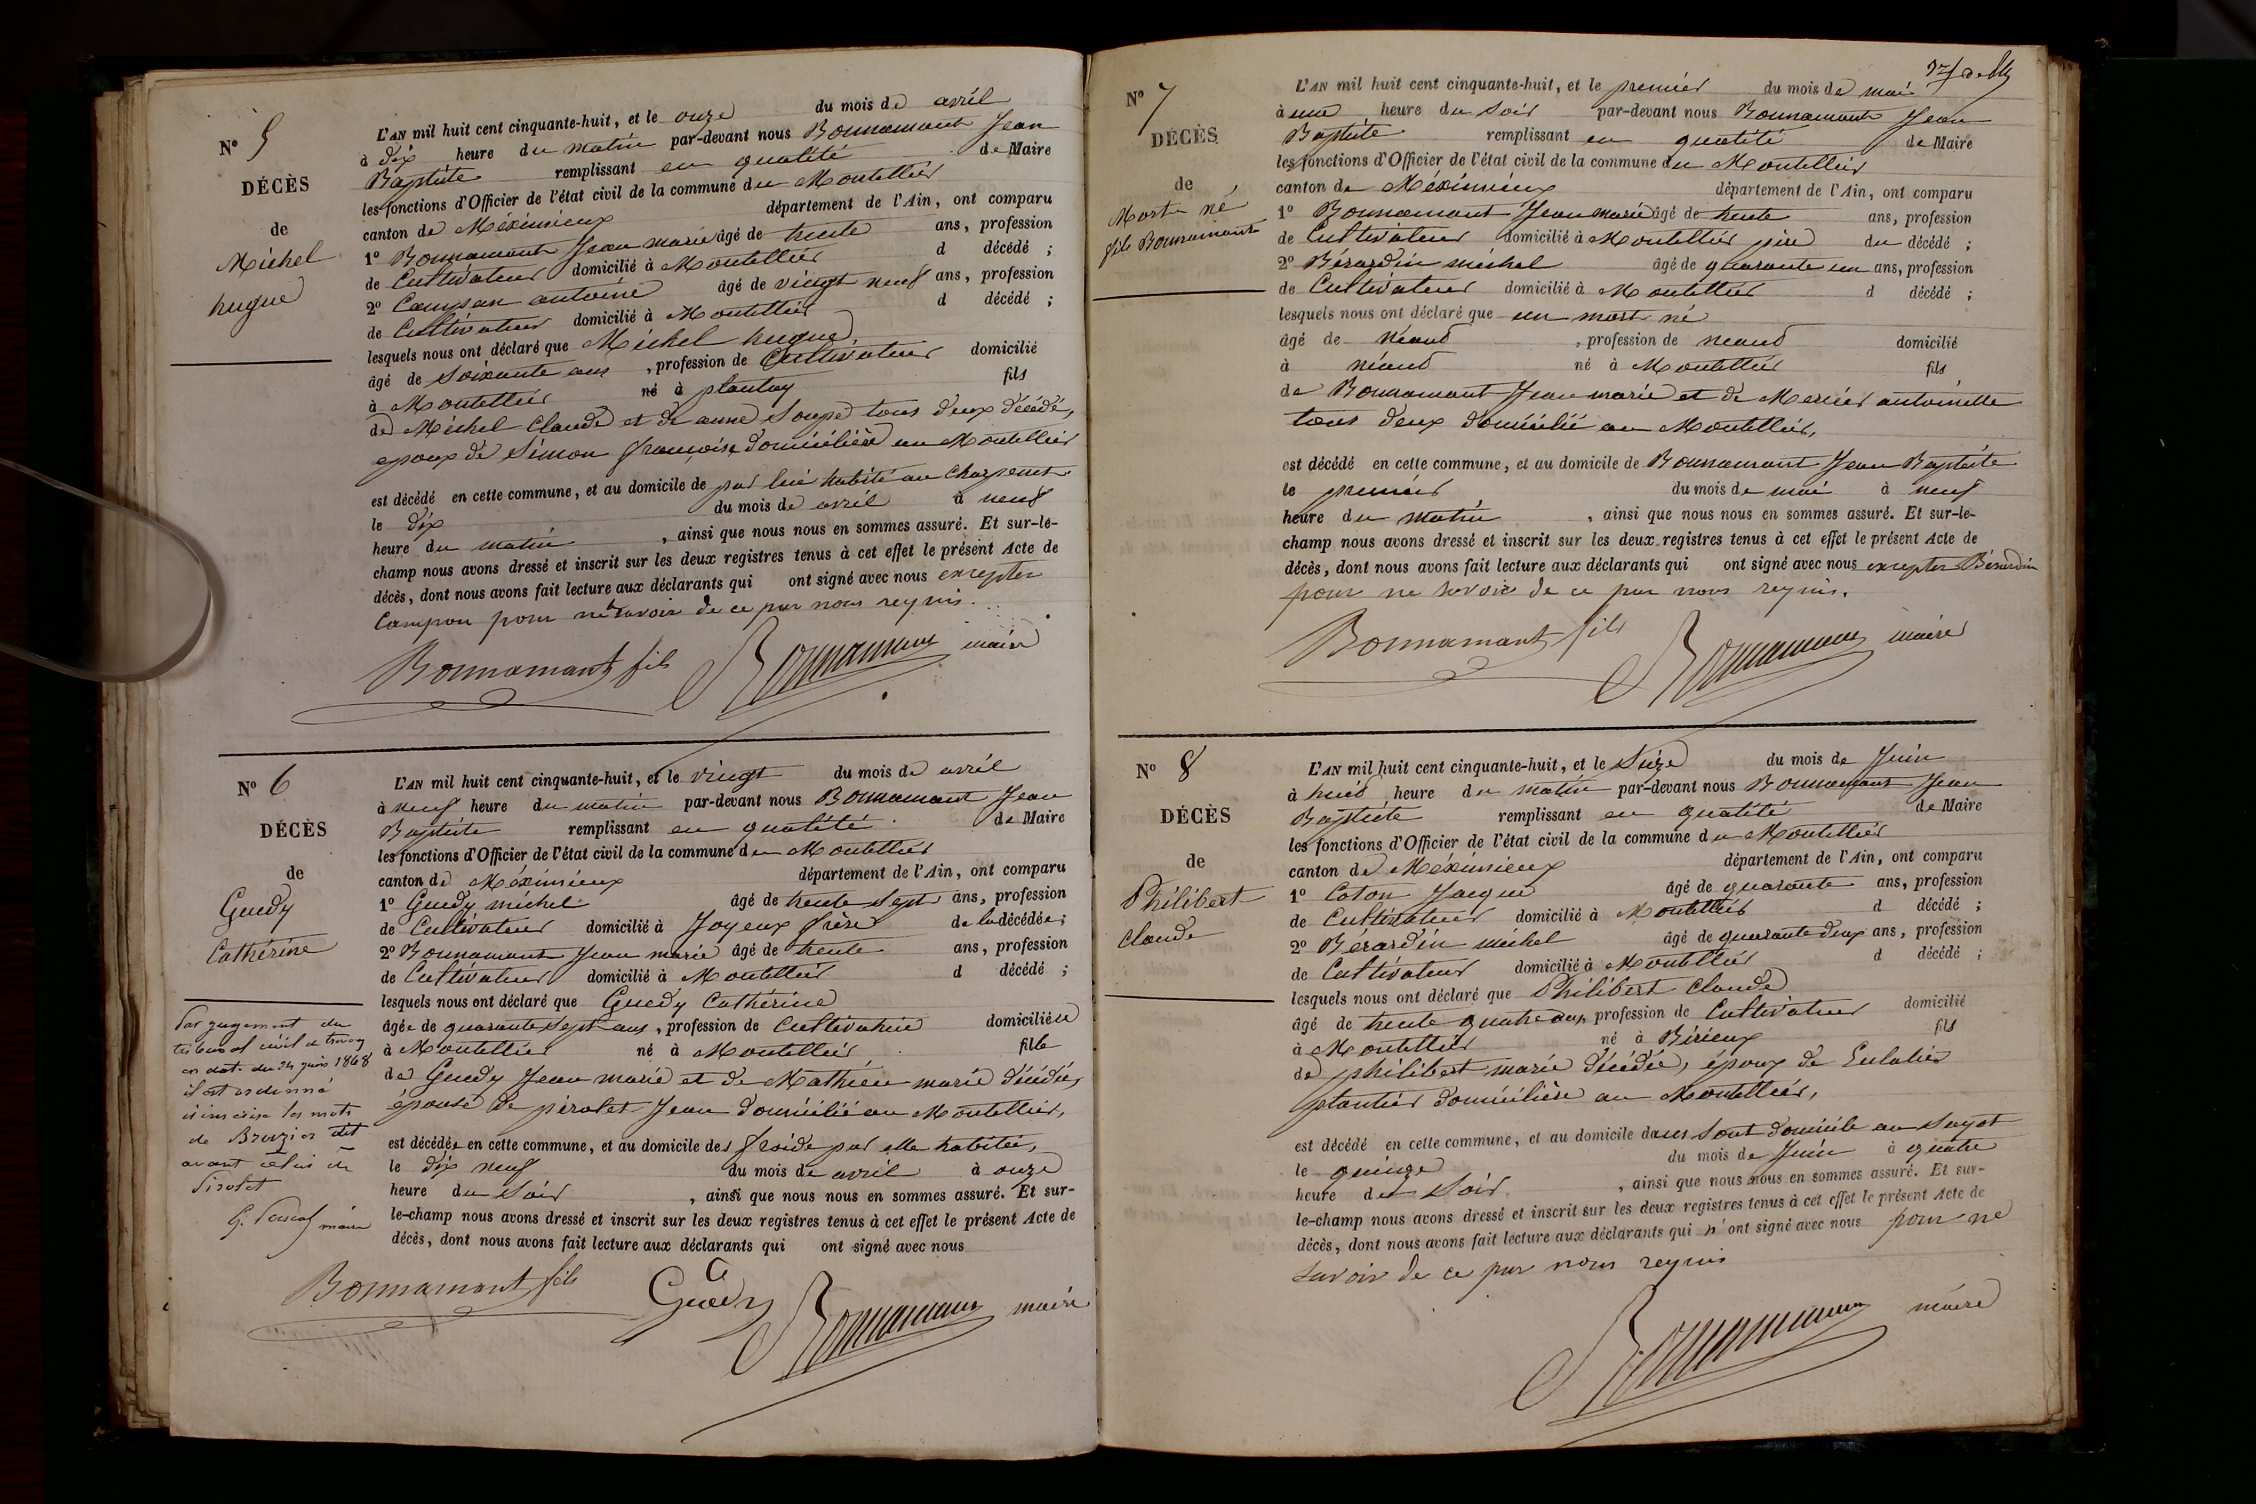 N° 5
DÉCÈS
de
Michel
hugue
L'AN mil huit cent cinquante-huit, et le onze du mois de avril
à dix heure du matin par-devant nous Bonnamant Jean
Baptiste remplissant en qualité de Maire
les fonctions d'Officier de l'état civil de la commune du Montellier
canton de Méximieux département de l'Ain, ont comparu
1° Bonnamant Jean marie âgé de trente ans, profession
de Cultivateur domicilié à Montellier d décédé ;
2° Campan antoine âgé de vingt neuf ans, profession
de Cultivateur domicilié à Montellier d décédé ;
lesquels nous ont déclaré que Michel hugue
âgé de soixante ans, profession de Cultivateur domicilié
à Montellier né à plantay fils
de Michel Claude et de anne Soupe tous deux décédé,
epoux de Simon françoise domicilière au Montellier
est décédé en cette commune, et au domicile de par lui habité au
le dix du mois de avril à neuf
heure du matin, ainsi que nous nous en sommes assuré. Et sur-le-
champ nous avons dressé et inscrit sur les deux registres tenus à cet effet le présent Acte de
décès, dont nous avons fait lecture aux déclarants qui ont signé avec nous excepter
Campon pour ne savoir de ce par nous requis.
Bonnamant fils Bonnamant maire
N° 6
DÉCÈS
de
Guedy
Cathérine
Par jugement du
tribunal civil de trevoux
en date du 24 juin 1868
il est ordonné
d'inscrire les mots
de Brevzier dit
avant celui de
Pirolet
G. Pascal maire
L'AN mil huit cent cinquante-huit, et le vingt du mois de avril
à neuf heure du matin par-devant nous Bonnamant Jean
Baptiste remplissant en qualité de Maire
les fonctions d'Officier de l'état civil de la commune du Montellier
canton de Méximieux département de l'Ain, ont comparu
1° Guedy michel âgé de trente sept ans, profession
de Cultivateur domicilié à Joyeux frère de la décédée ;
2° Bonnamant Jean marie âgé de trente ans, profession
de Cultivateur domicilié à Montellier d décédé ;
lesquels nous ont déclaré que Guedy Cathérine
âgée de quarante sept ans, profession de Cultivatrice domiciliée
à Montellier né à Montellier fille
de Guedy Jean marie et de Mathieu marie décédée,
épouse de pirolet Jean domicilié au Montellier,
est décédée en cette commune, et au domicile des froide par elle habitée,
le dix neuf du mois de avril à onze
heure du soir, ainsi que nous nous en sommes assuré. Et sur-
le-champ nous avons dressé et inscrit sur les deux registres tenus à cet effet le présent Acte de
décès, dont nous avons fait lecture aux déclarants qui ont signé avec nous
Bonnamant fils Guedy Bonnamant maire
N° 7
DÉCÈS
de
Mort né
fils Bonnamant
L'AN mil huit cent cinquante-huit, et le premier du mois de mai
à une heure du soir par-devant nous Bonnamant Jean
Baptiste remplissant en qualité de Maire
les fonctions d'Officier de l'état civil de la commune du Montellier
canton de Méximieux département de l'Ain, ont comparu
1° Bonnamant Jean marie âgé de trente ans, profession
de Cultivateur domicilié à Montellier père du décédé ;
2° Bérardin michel âgé de quarante un ans, profession
de Cultivateur domicilié à Montellier d décédé ;
lesquels nous ont déclaré que un mort né
âgé de néant, profession de néant domicilié
à néant né à Montellier fils
de Bonnamant Jean marie et de Mercier antoinette
tous deux domicilié au Montellier,
est décédé en cette commune, et au domicile de Bonnamant Jean Baptiste
le premier du mois de mai à neuf
heure du matin, ainsi que nous nous en sommes assuré. Et sur-le-
champ nous avons dressé et inscrit sur les deux registres tenus à cet effet le présent Acte de
décès, dont nous avons fait lecture aux déclarants qui ont signé avec nous excepter Bérardin
pour ne savoir de ce par nous requis.
Bonnamant fils Bonnamant maire
N° 8
DÉCÈS
de
Philibert
claude
L'AN mil huit cent cinquante-huit, et le Seize du mois de Juin
à huit heure du matin par-devant nous Bonnamant Jean
Baptiste remplissant en qualité de Maire
les fonctions d'Officier de l'état civil de la commune du Montellier
canton de Méximieux département de l'Ain, ont comparu
1° Coton Jacque âgé de quarante ans, profession
de Cultivateur domicilié à Montellier d décédé ;
2° Bérardin michel âgé de quarante deux ans, profession
de Cultivateur domicilié à Montellier d décédé ;
lesquels nous ont déclaré que Philibert claude
âgé de trente quatre ans, profession de Cultivateur domicilié
à Montellier né à Birieux fils
de philibert marie décédée, époux de Eulalie
plantier domicilière au Montellier,
est décédé en cette commune, et au domicile dans sont domicile au Sayot
le quinze du mois de Juin à quatre
heure du soir, ainsi que nous nous en sommes assuré. Et sur-
le-champ nous avons dressé et inscrit sur les deux registres tenus à cet effet le présent Acte de
décès, dont nous avons fait lecture aux déclarants qui n'ont signé avec nous pour ne
savoir de ce par nous requis
Bonnamant maire